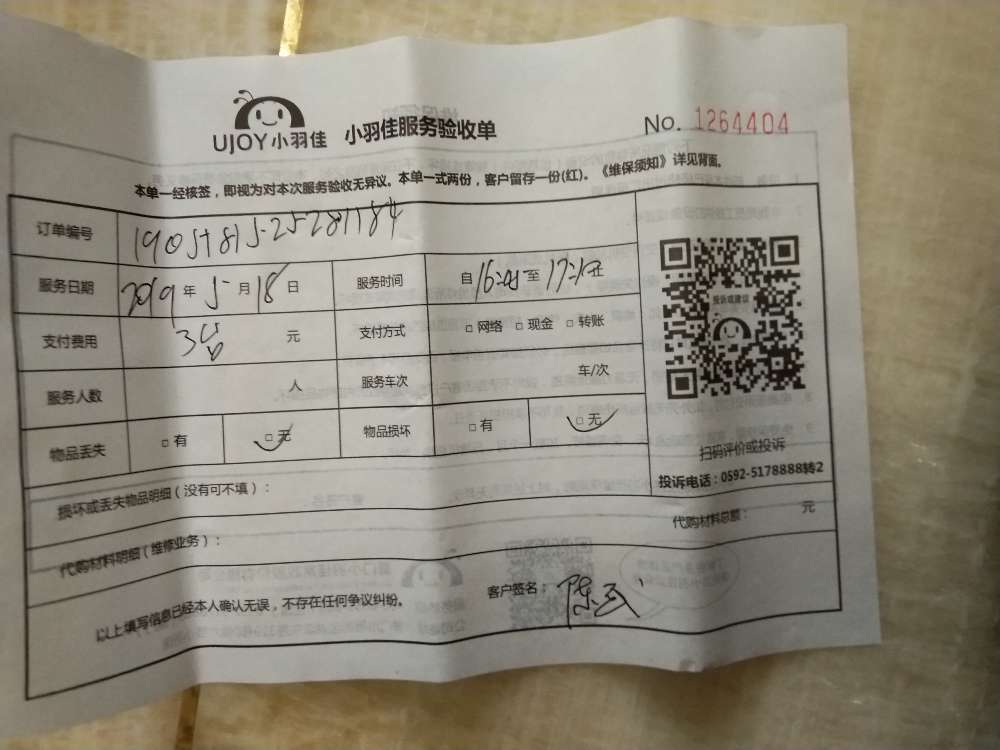 UJOY小羽佳 小羽佳服务验收单 No. 1264404
本单一经核签，即视为对本次服务验收无异议。本单一式两份，客户留存一份(红)。《维保须知》详见背面。
订单编号
服务日期 2019 年 5 月 18 日 服务时间 自 16:05 至
支付费用 元 支付方式 □ 网络 □ 现金 □ 转账
服务人数 人 服务车次 车/次
物品丢失 □ 有 □ 无 物品损坏 □ 有 □ 无
投诉或建议
扫码评价或投诉
投诉电话：0592-5178888转2
损坏或丢失物品明细（没有可不填）：
代购材料明细（维修业务）： 代购材料总额： 元
以上填写信息已经本人确认无误，不存在任何争议纠纷。 客户签名：